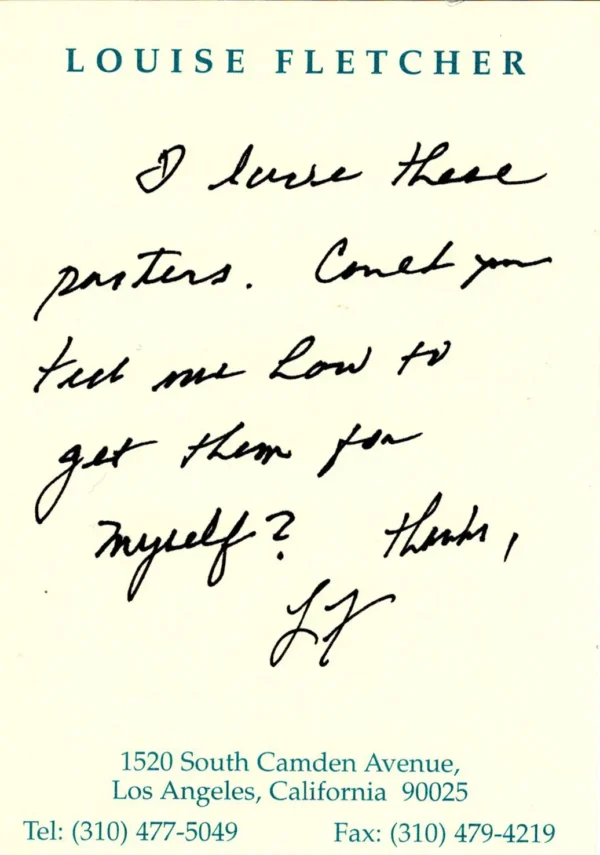 LOUISE FLETCHER
I love these
posters. Could you
tell me how to
get them for
myself? Thanks,
LF
1520 South Camden Avenue,
Los Angeles, California 90025
Tel: (310) 477-5049 Fax: (310) 479-4219